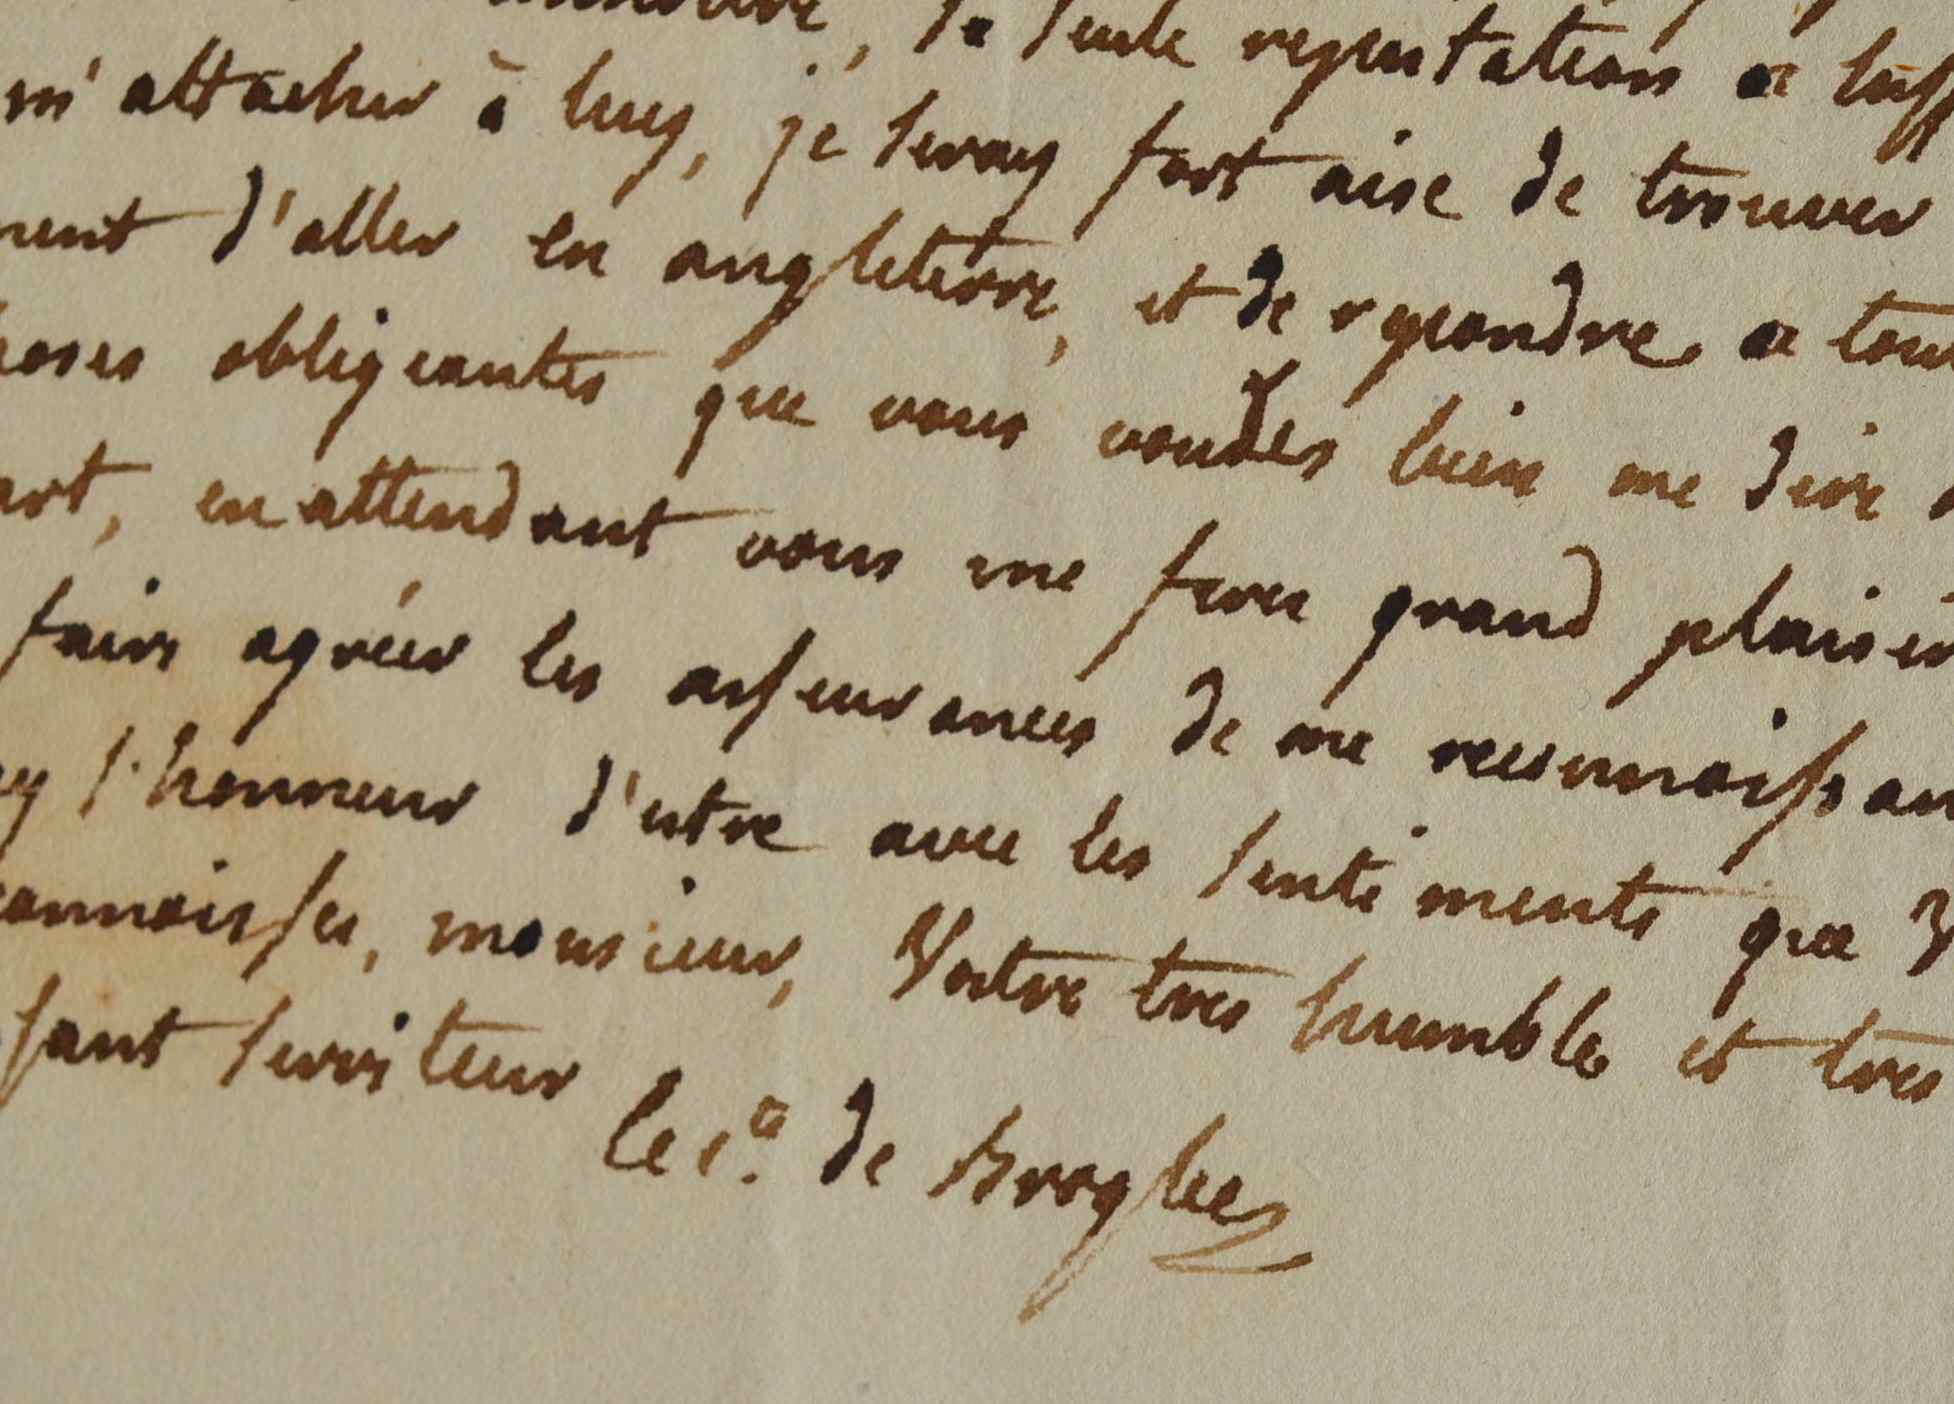 , sa seule reputation a suff
m'attacher à luy, je seray fort aise de trouver
ment d'aller en angleterre, et de repondre a tout
hoses obligeantes que vous voudrés bien me dire d
art, en attendant vous me ferer grand plaisir
faire agréer les asseurances de ma reconnoissan
ay l'honneur d'estre avec les sentiments que v
connoisser, monsieur, Vostre tres humble et tres
ssant serviteur
le c.te de Broglie